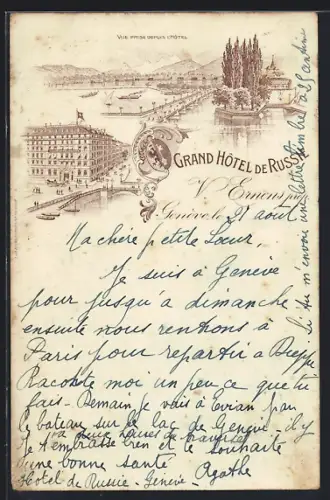 VUE PRISE DEPUIS L'HÔTEL
GRAND HÔTEL DE RUSSIE
Genève le 21 août
Ma chère petite Sœur,
Je suis à Genève
pour jusqu'à dimanche
ensuite nous rentrons à
Paris pour repartir à Dieppe
Raconte moi un peu ce que tu
fais - Demain je vais à Evian par
le bateau sur le lac de Genève - il y
a deux heures de traversée
Je t'embrasse bien et te souhaite
une bonne santé
Agathe
Hôtel de Russie - Genève -
Si tu m'envoie une lettre timbre à 25 centime